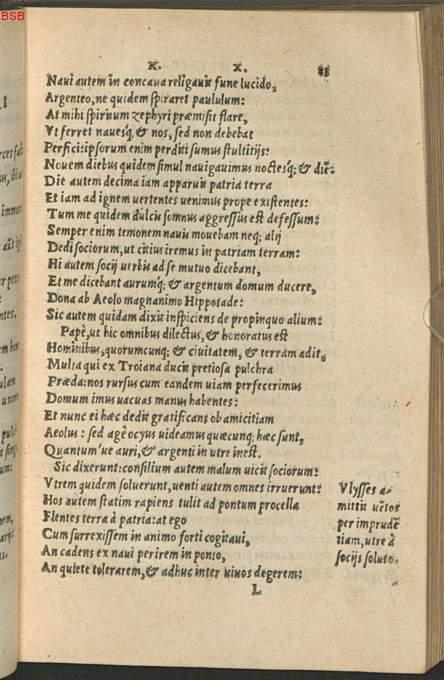 BSB
K. X. 81
Naui autem in concaua religauit fune lucido,
Argenteo, ne quidem spiraret paululum:
At mihi spiritum zephyri præmisit flare,
Vt ferret nauesq́;, & nos, sed non debebat
Perfici: ipsorum enim perditi sumus stultitijs:
Nouem diebus quidem simul nauigauimus noctesq́; & diē:
Die autem decima iam apparuit patria terra
Et iam ad ignem uertentes uenimus prope existentes:
Tum me quidem dulcis somnus aggressus est defessum:
Semper enim temonem nauis mouebam neq; alij
Dedi sociorum, ut citius iremus in patriam terram:
Hi autem socij uerbis ad se mutuo dicebant,
Et me dicebant aurumq́; & argentum domum ducere,
Dona ab Aeolo magnanimo Hippotade:
Sic autem quidam dixit inspiciens de propinquo alium:
Papè, ut hic omnibus dilectus, & honoratus est
Hominibus, quorumcunq; & ciuitatem, & terram adit,
Multa qui ex Troiana ducit pretiosa pulchra
Præda: nos rursus cum eandem uiam perfecerimus
Domum imus uacuas manus habentes:
Et nunc ei hæc dedit gratificans ob amicitiam
Aeolus: sed age ocyus uideamus quæcunq; hæc sunt,
Quantum'ue auri, & argenti in utre inest.
Sic dixerunt: consilium autem malum uicit sociorum:
Vtrem quidem soluerunt, uenti autem omnes irruerunt:
Hos autem statim rapiens tulit ad pontum procella
Flentes terra à patria: at ego
Cum surrexissem in animo forti cogitaui,
An cadens ex naui perirem in ponto,
An quiete tolerarem, & adhuc inter uiuos degerem:
Vlysses a-
mittit uētos
per imprudē
tiam, utre à
socijs soluto.
L